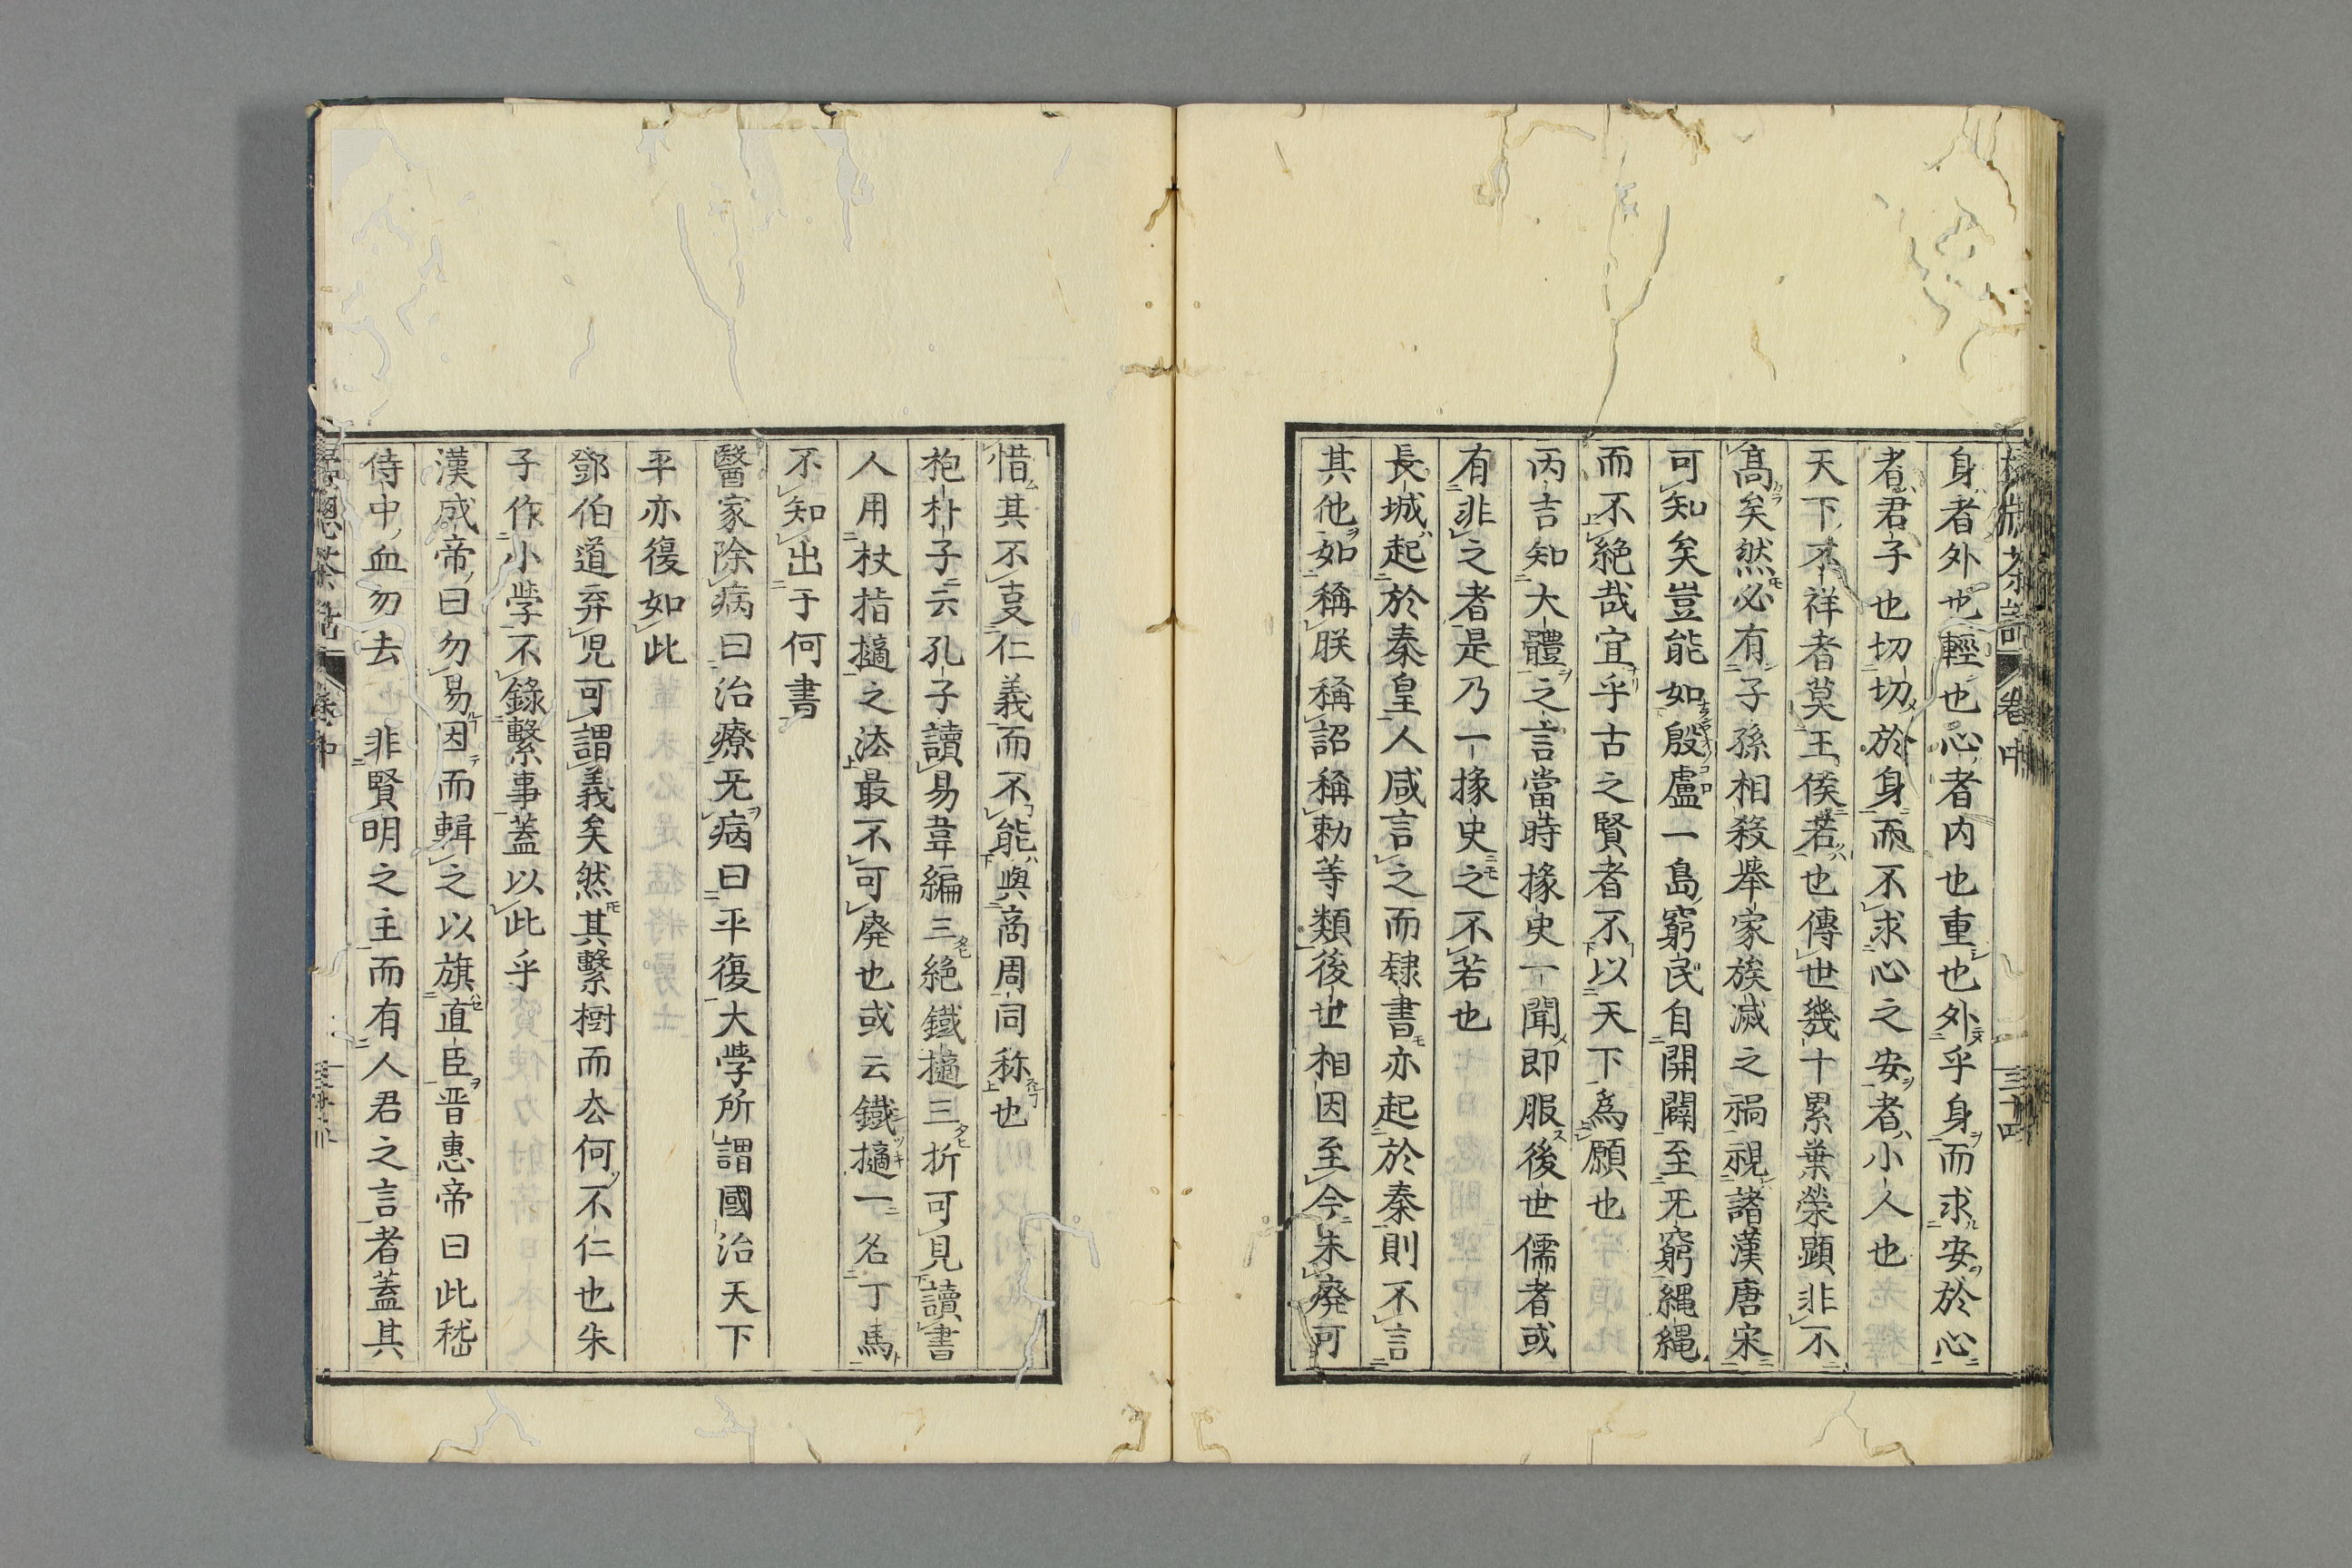 身者外也輕也心者内也重也外乎身而求安於心
者君子也切切於身而不求心之安者小人也
天下不祥者莫王侯若也傳世幾十累葉榮顕非不
高矣然必有子孫相殺舉家族滅之禍視諸漢唐宋
可知矣豈能如殷盧一島窮民自開闢至无窮縄縄
而不絶哉宜乎古之賢者不以天下為願也
丙吉知大體之言當時掾史一聞即服後世儒者或
有非之者是乃一掾史之不若也
長城起於秦皇人咸言之而隷書亦起於秦則不言
其他如稱朕稱詔稱勅等類後世相因至今未廃可
卷中
三十四
惜其不㕝仁義而不能與商周同称也
抱朴子云孔子讀易韋編三絶鐵擿三折可見讀書
人用杖指擿之法最不可廃也或云鐵擿一名丁馬
不知出于何書
醫家除病曰治療无病曰平復大学所謂國治天下
平亦復如此
鄧伯道弃児可謂義矣然其繫樹而去何不仁也朱
子作小学不錄繫事蓋以此乎
漢成帝曰勿易因而輯之以旌直臣晋惠帝曰此嵇
侍中血勿去 非賢明之主而有人君之言者蓋其